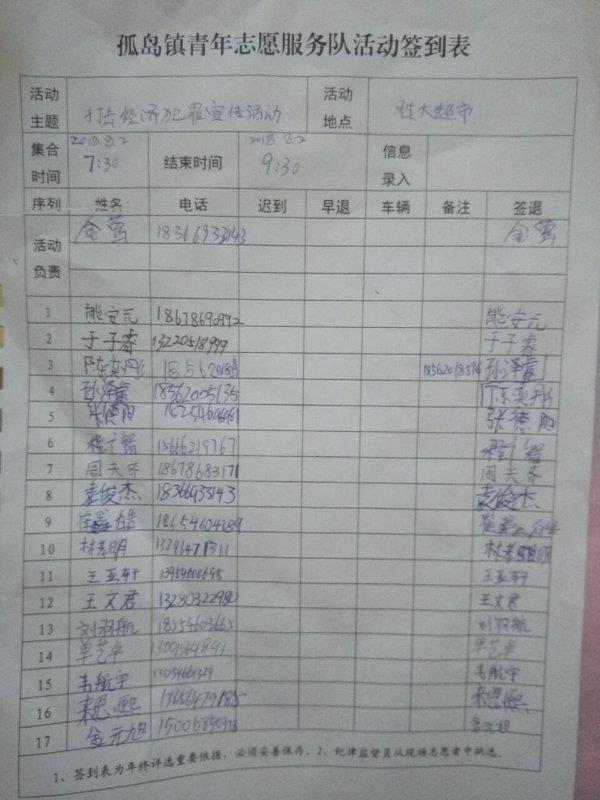 孤岛镇青年志愿服务队活动签到表
活动主题 打击经济犯罪宣传活动 活动地点 胜大超市
集合时间 2018.8.2 7:30 结束时间 2018.8.2 9:30 信息录入
序列 姓名 电话 迟到 早退 车辆 备注 签退
活动负责 金莺 18366933143 金莺
1 熊安元 18678690992 熊安元
2 于子睿 13220518999 于子睿
3 陈奕彤 18562018596 孙泽睿
4 孙泽睿 18562005135 陈奕彤
5 张德阳 张德阳
6 程广智 15666219767 程广智
7 周天齐 18678683171 周天齐
8 袁俊杰 袁俊杰
9 崔鑫皓 18654604189
10 林孝明 13296471311 林孝明
11 王亚轩 13954600695 王亚轩
12 王文君 13280322980 王文君
13 刘羽航 18554603665 刘羽航
14 单艺卓 单艺卓
15 韦航宇 韦航宇
16 来思熙 17656479185 来思熙
17 金元旭 金元旭
1、签到表为年终评选重要依据，必须妥善保存。2、纪律监督员从现场志愿者中挑选。